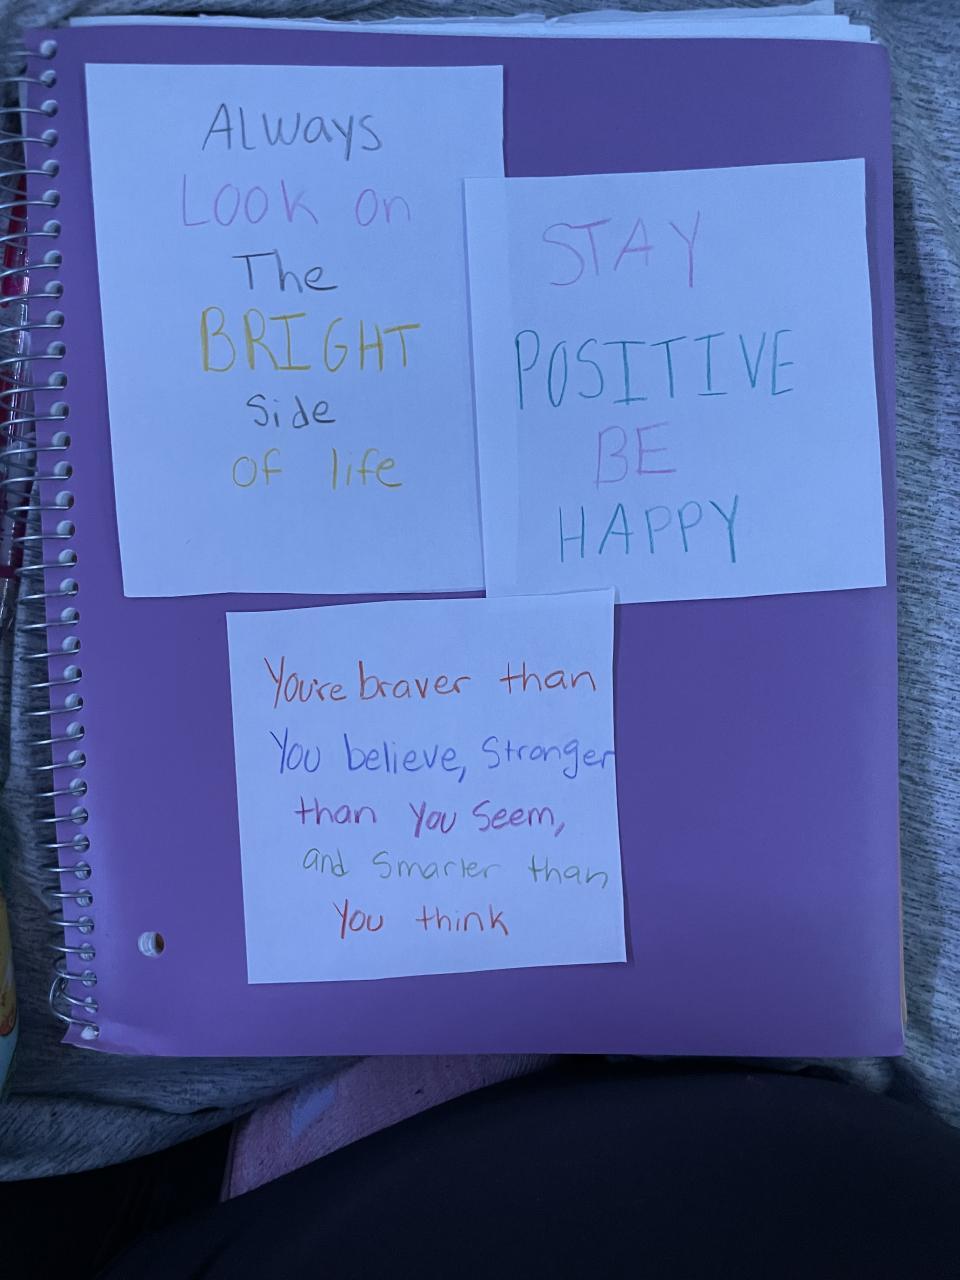 Always
Look on
The
BRIGHT
Side
Of life
STAY
POSITIVE
BE
HAPPY
You're braver than
You believe, Stronger
than You Seem,
and Smarter than
You think